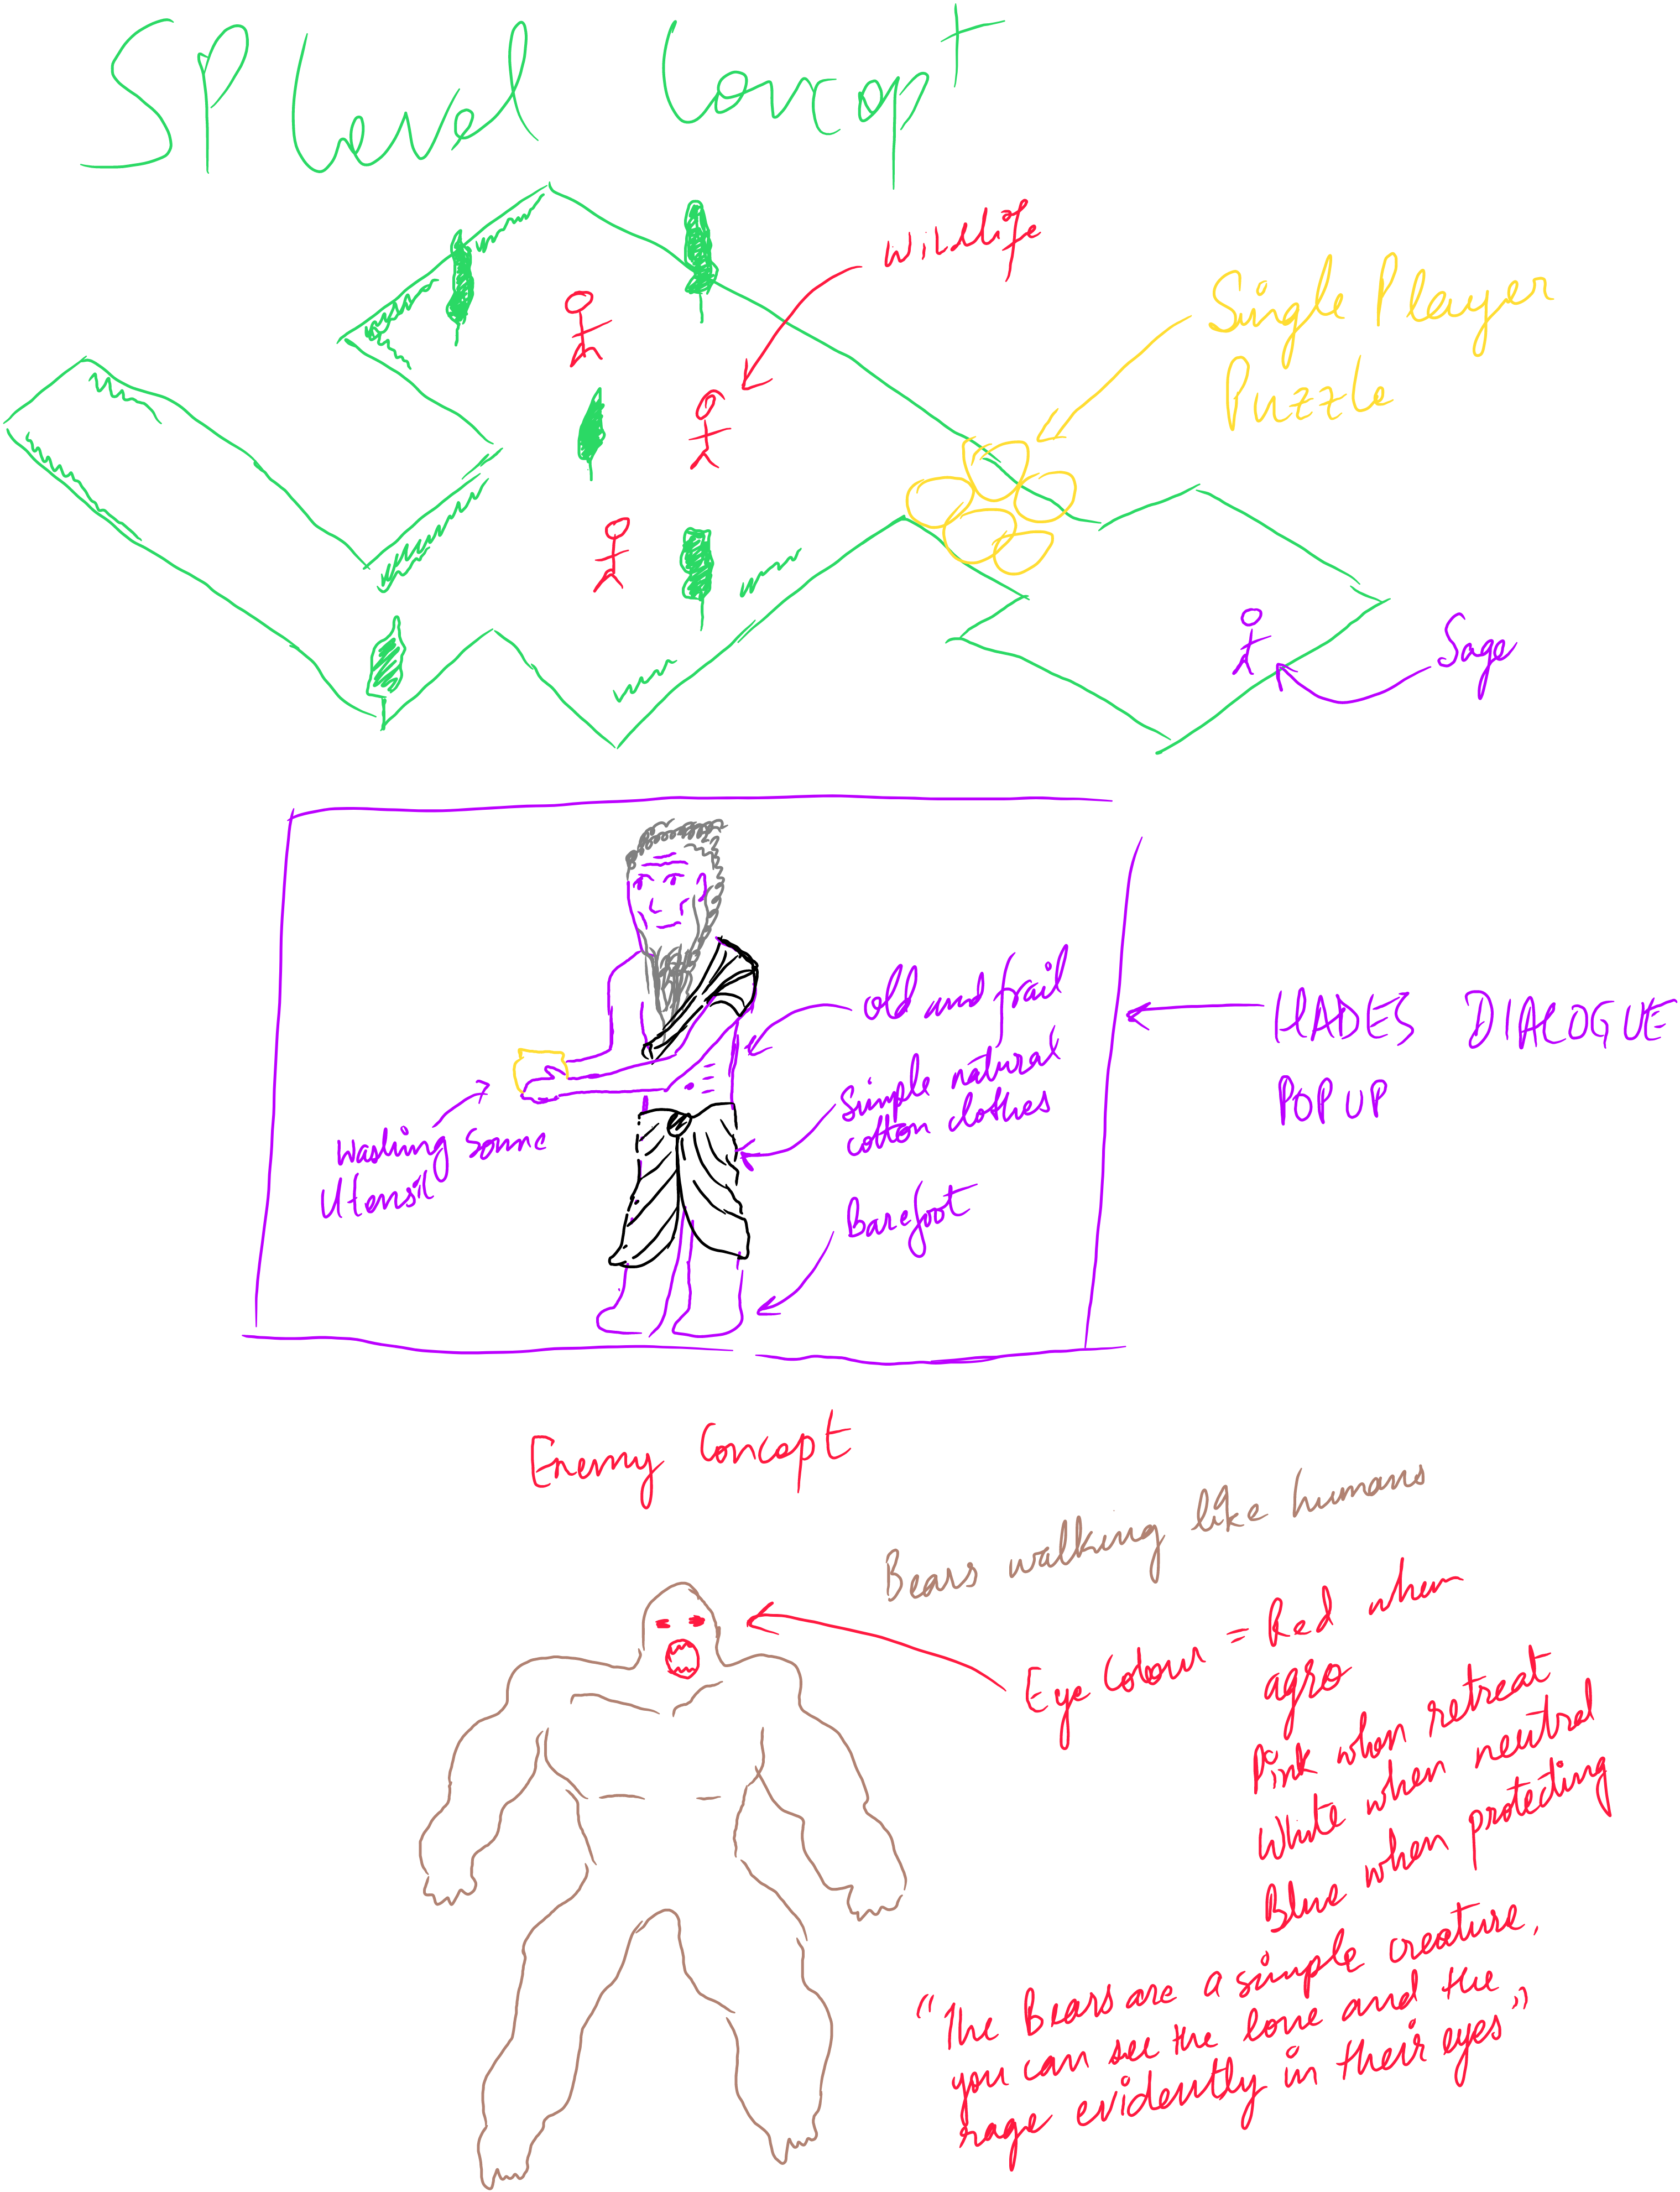 SP Level Concept
Wildlife
Single Player
Puzzle
Sage
old and frail
simple natural
cotton clothes
Barefoot
Washing some
Utensil
HADES DIALOGUE
POPUP
Enemy Concept
Bears walking like humans
Eye Colour = Red when
agro
Pink when retreat
White when neutral
Blue when protecting
"The Bears are a simple creature,
you can see the love and the
rage evidently in their eyes"